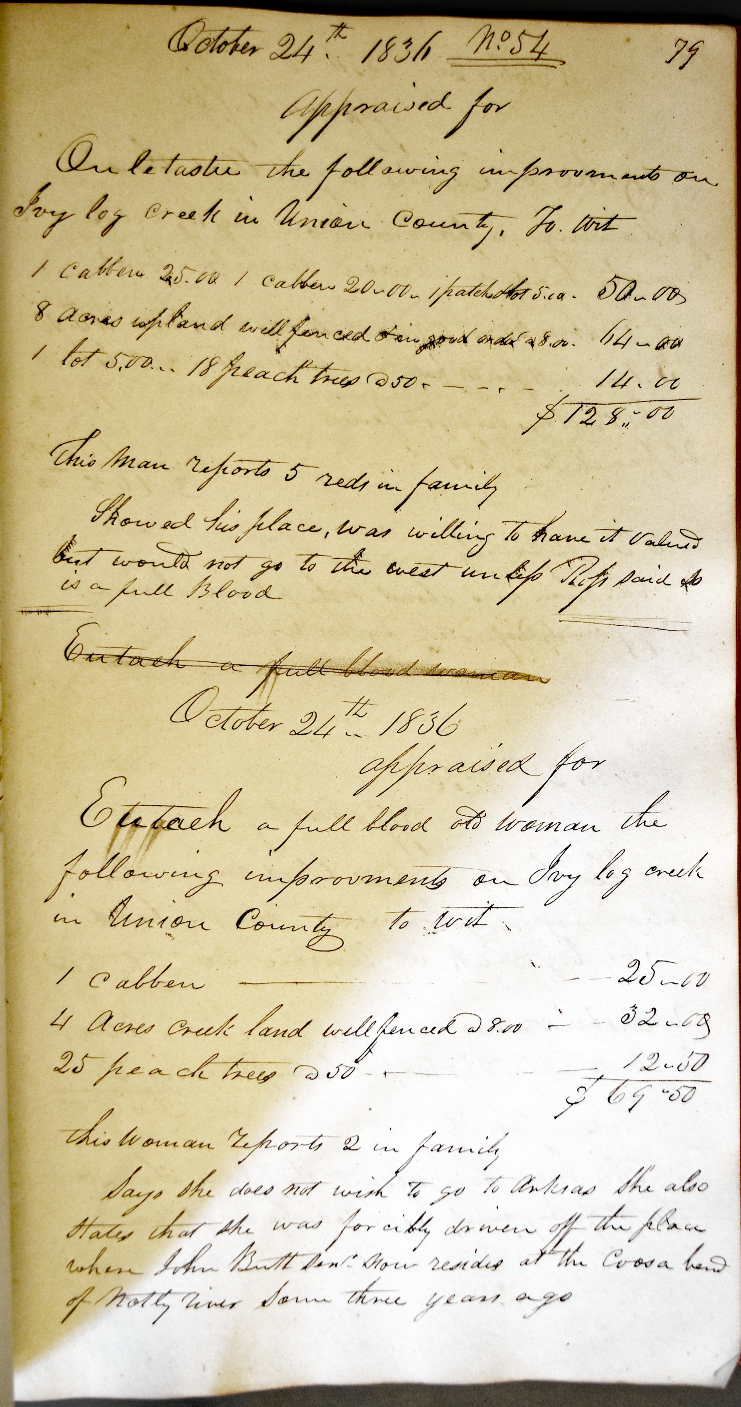 October 24th 1836 No 54 79
Appraised for
Ouletastee the following improvments on
Ivy log creek in Union County, To. Wit
1 cabben 25.00 1 cabben 20-00- 1 patch & lot 5.00- 50-00
8 Acres upland well fenced & in good order @8.00- 64-00
1 lot 5.00- 18 peach trees @50- 14.00
$128-00
This Man reports 5 reds in family
Showed his place, was willing to have it valued
but would not go to the west unless Ross said so
is a full Blood
Eutach a full blood woman
October 24th 1836
appraised for
Eutach a full blood old woman the
following improvments on Ivy log creek
in Union County to wit
1 cabben 25-00
4 Acres creek land well fenced @8.00 - 32-00
25 peach trees @50 - 12-50
$69-50
this Woman reports 2 in family
Says she does not wish to go to Arksas She also
states that she was forcibly driven off the place
where John Butt Senr now resides at the Coosa bend
of Notty river some three years ago